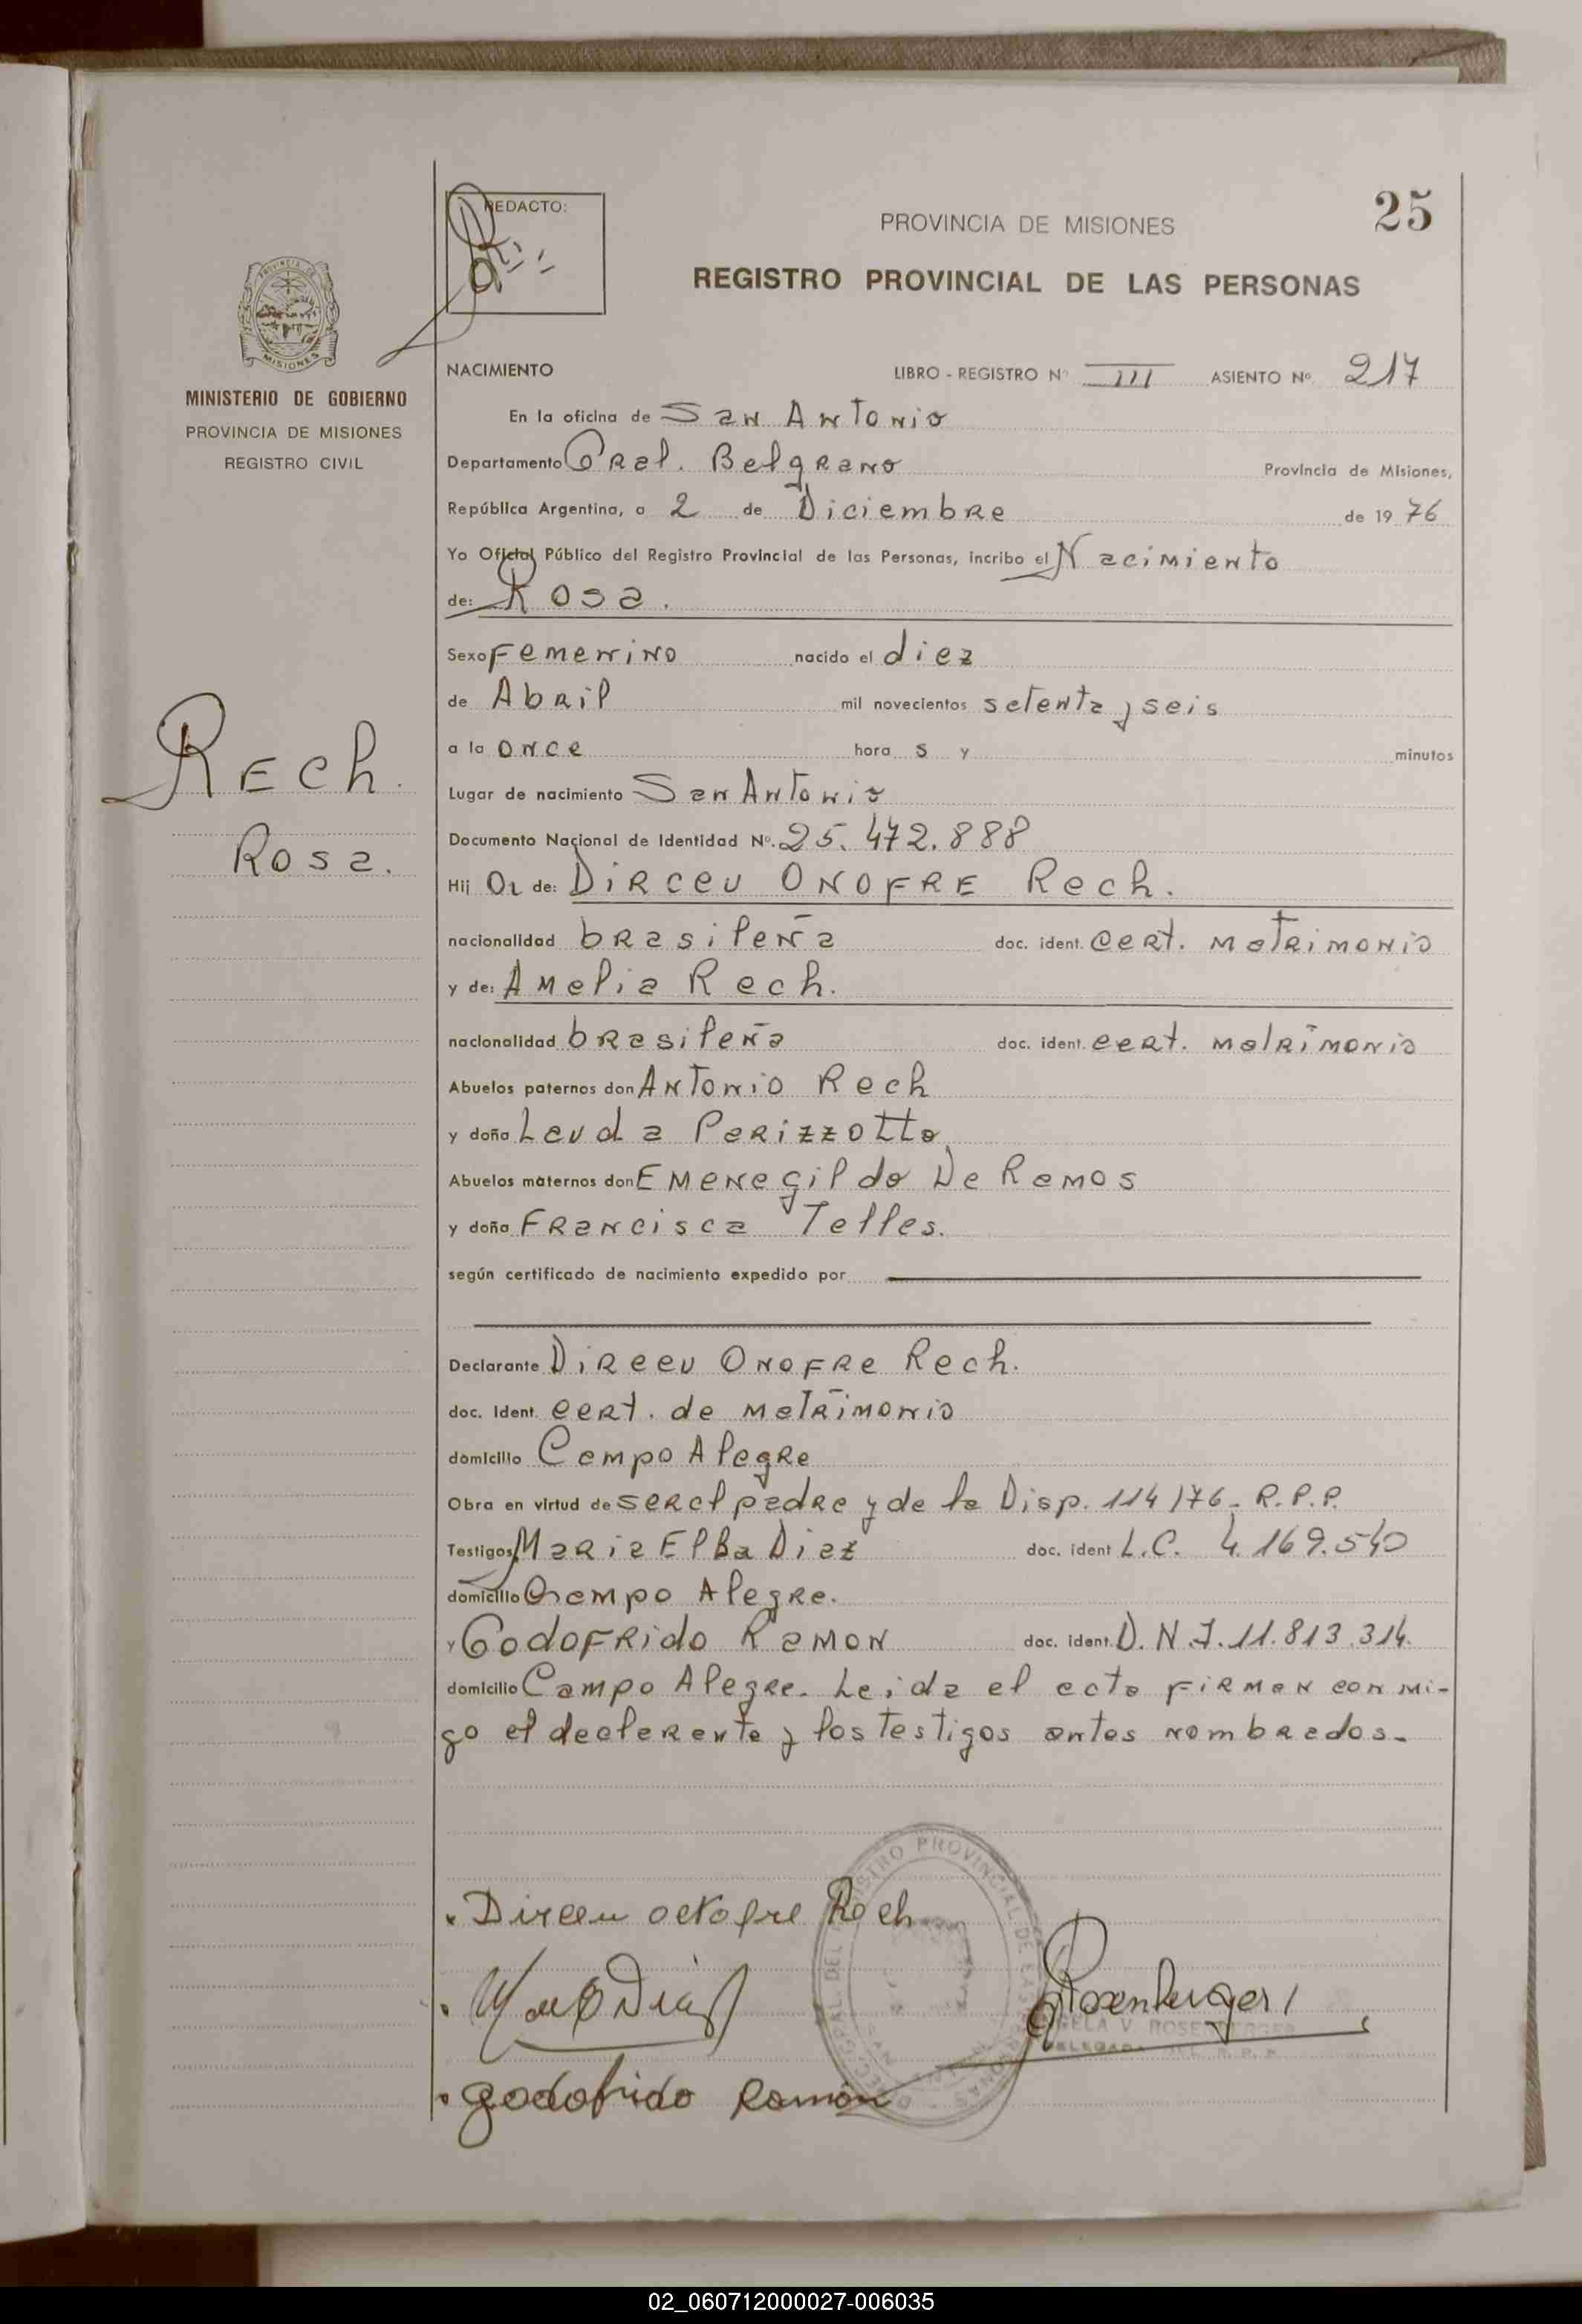 25
REDACTO:
PROVINCIA DE MISIONES
REGISTRO PROVINCIAL DE LAS PERSONAS
PROVINCIA DE
MISIONES
MINISTERIO DE GOBIERNO
PROVINCIA DE MISIONES
REGISTRO CIVIL
NACIMIENTO LIBRO - REGISTRO Nº III ASIENTO Nº 217
En la oficina de San Antonio
Departamento Gral. Belgrano Provincia de Misiones,
República Argentina, a 2 de Diciembre de 1976
Yo Oficial Público del Registro Provincial de las Personas, incribo el Nacimiento
de: Rosa.
Sexo Femenino nacido el diez
de Abril mil novecientos setenta y seis
a la once hora s y minutos
Rech.
Rosa.
Lugar de nacimiento San Antonio
Documento Nacional de Identidad Nº. 25.472.888
Hij a de: DIRCEU ONOFRE Rech.
nacionalidad brasileña doc. ident. cert. matrimonio
y de: Amelia Rech.
nacionalidad brasileña doc. ident. cert. matrimonio
Abuelos paternos don Antonio Rech
y doña Leuda Perizzotto
Abuelos maternos don Emenegildo De Ramos
y doña Francisca Telles.
según certificado de nacimiento expedido por
Declarante Dirceu Onofre Rech.
doc. ident. cert. de matrimonio
domicilio Campo Alegre
Obra en virtud de ser el padre y de la Disp. 114/76- R.P.P.
Testigos Maria Elba Diaz doc. ident L.C. 4.169.540
domicilio Campo Alegre.
y Godofrido Ramon doc. ident. D.N.I. 11.813.314.
domicilio Campo Alegre. Leida el acta firman con mi-
go el declarente y los testigos antes nombrados.-
Dirceu octofre Rech
Rosenberger
ANGELA V. ROSENBERGER
DELEGADA DEL R.P.P.
godofrido Ramón
02_060712000027-006035